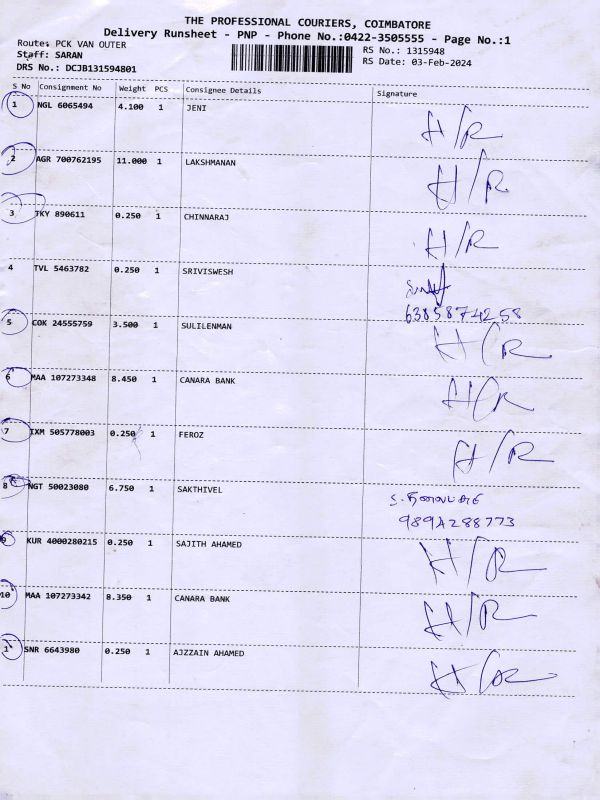 THE PROFESSIONAL COURIERS, COIMBATORE
Delivery Runsheet - PNP - Phone No.:0422-3505555 - Page No.:1
Route: PCK VAN OUTER RS No.: 1315948
Staff: SARAN RS Date: 03-Feb-2024
DRS No.: DCJB131594801
S No Consignment No Weight PCS Consignee Details Signature
1 NGL 6065494 4.100 1 JENI H/R
2 AGR 700762195 11.000 1 LAKSHMANAN H/R
3 TKY 890611 0.250 1 CHINNARAJ H/R
4 TVL 5463782 0.250 1 SRIVISWESH
6385874258
5 COK 24555759 3.500 1 SULILENMAN H/R
6 MAA 107273348 8.450 1 CANARA BANK H/R
7 IXM 505778003 0.250 1 FEROZ H/R
8 NGT 50023080 6.750 1 SAKTHIVEL
9894288773
9 KUR 4000280215 0.250 1 SAJITH AHAMED H/R
10 MAA 107273342 8.350 1 CANARA BANK H/R
1 SNR 6643980 0.250 1 AJZZAIN AHAMED H/R